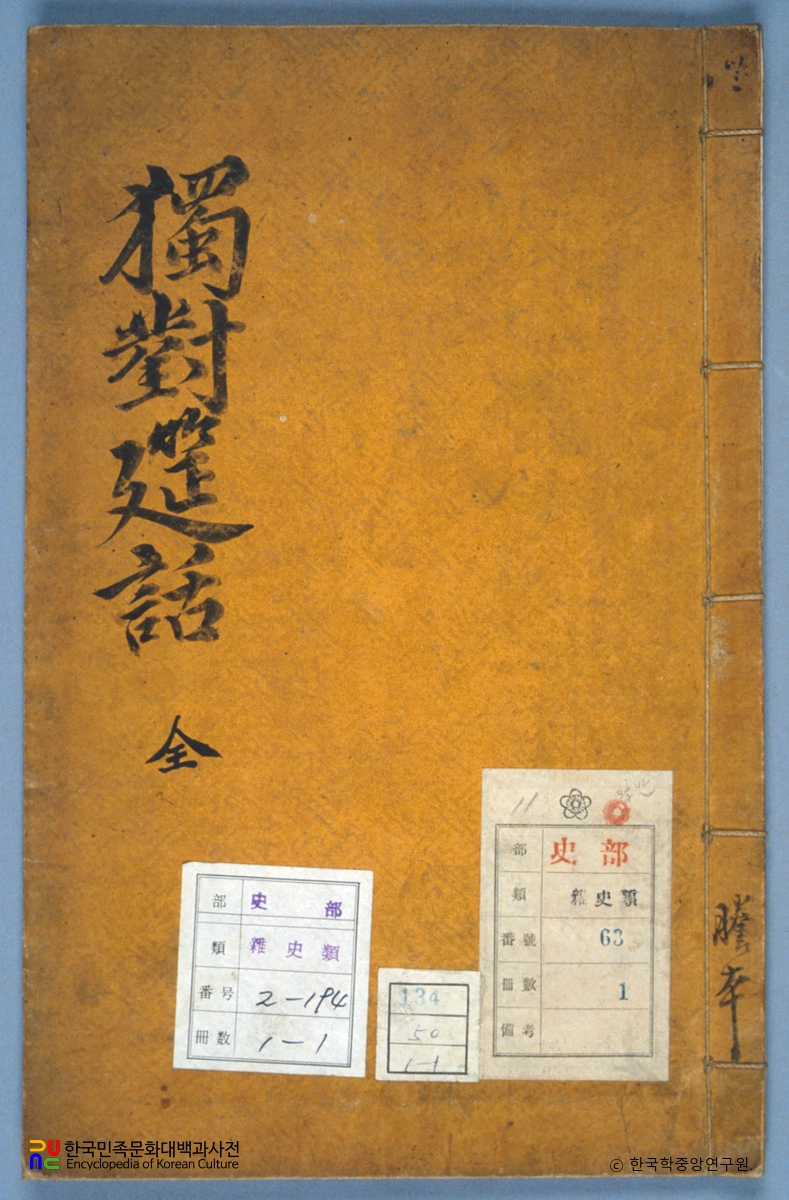 獨對筵話
全
謄本
11
部 史部
類 雜史類
番號 63
冊數 1
備考
部 史部
類 雜史類
番号 2-194
冊数 1-1
134
50
1-1
한국민족문화대백과사전
Encyclopedia of Korean Culture
© 한국학중앙연구원